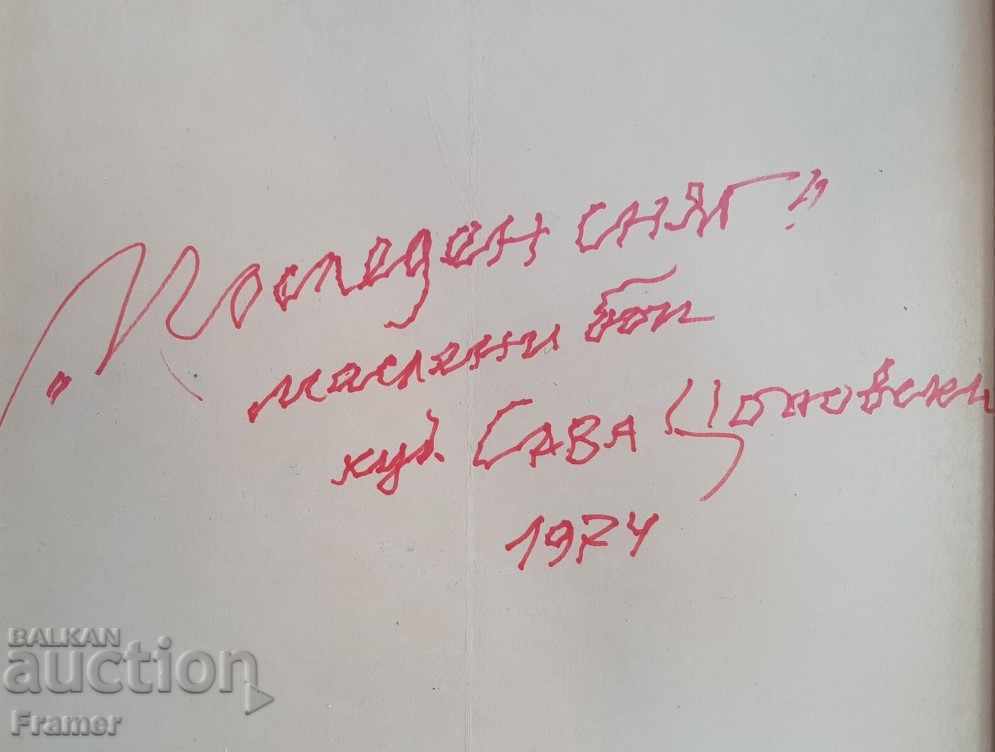 „Последен сняг"
маслени бои
худ. САВА Цоновски
1974
BALKAN
auction
Framer